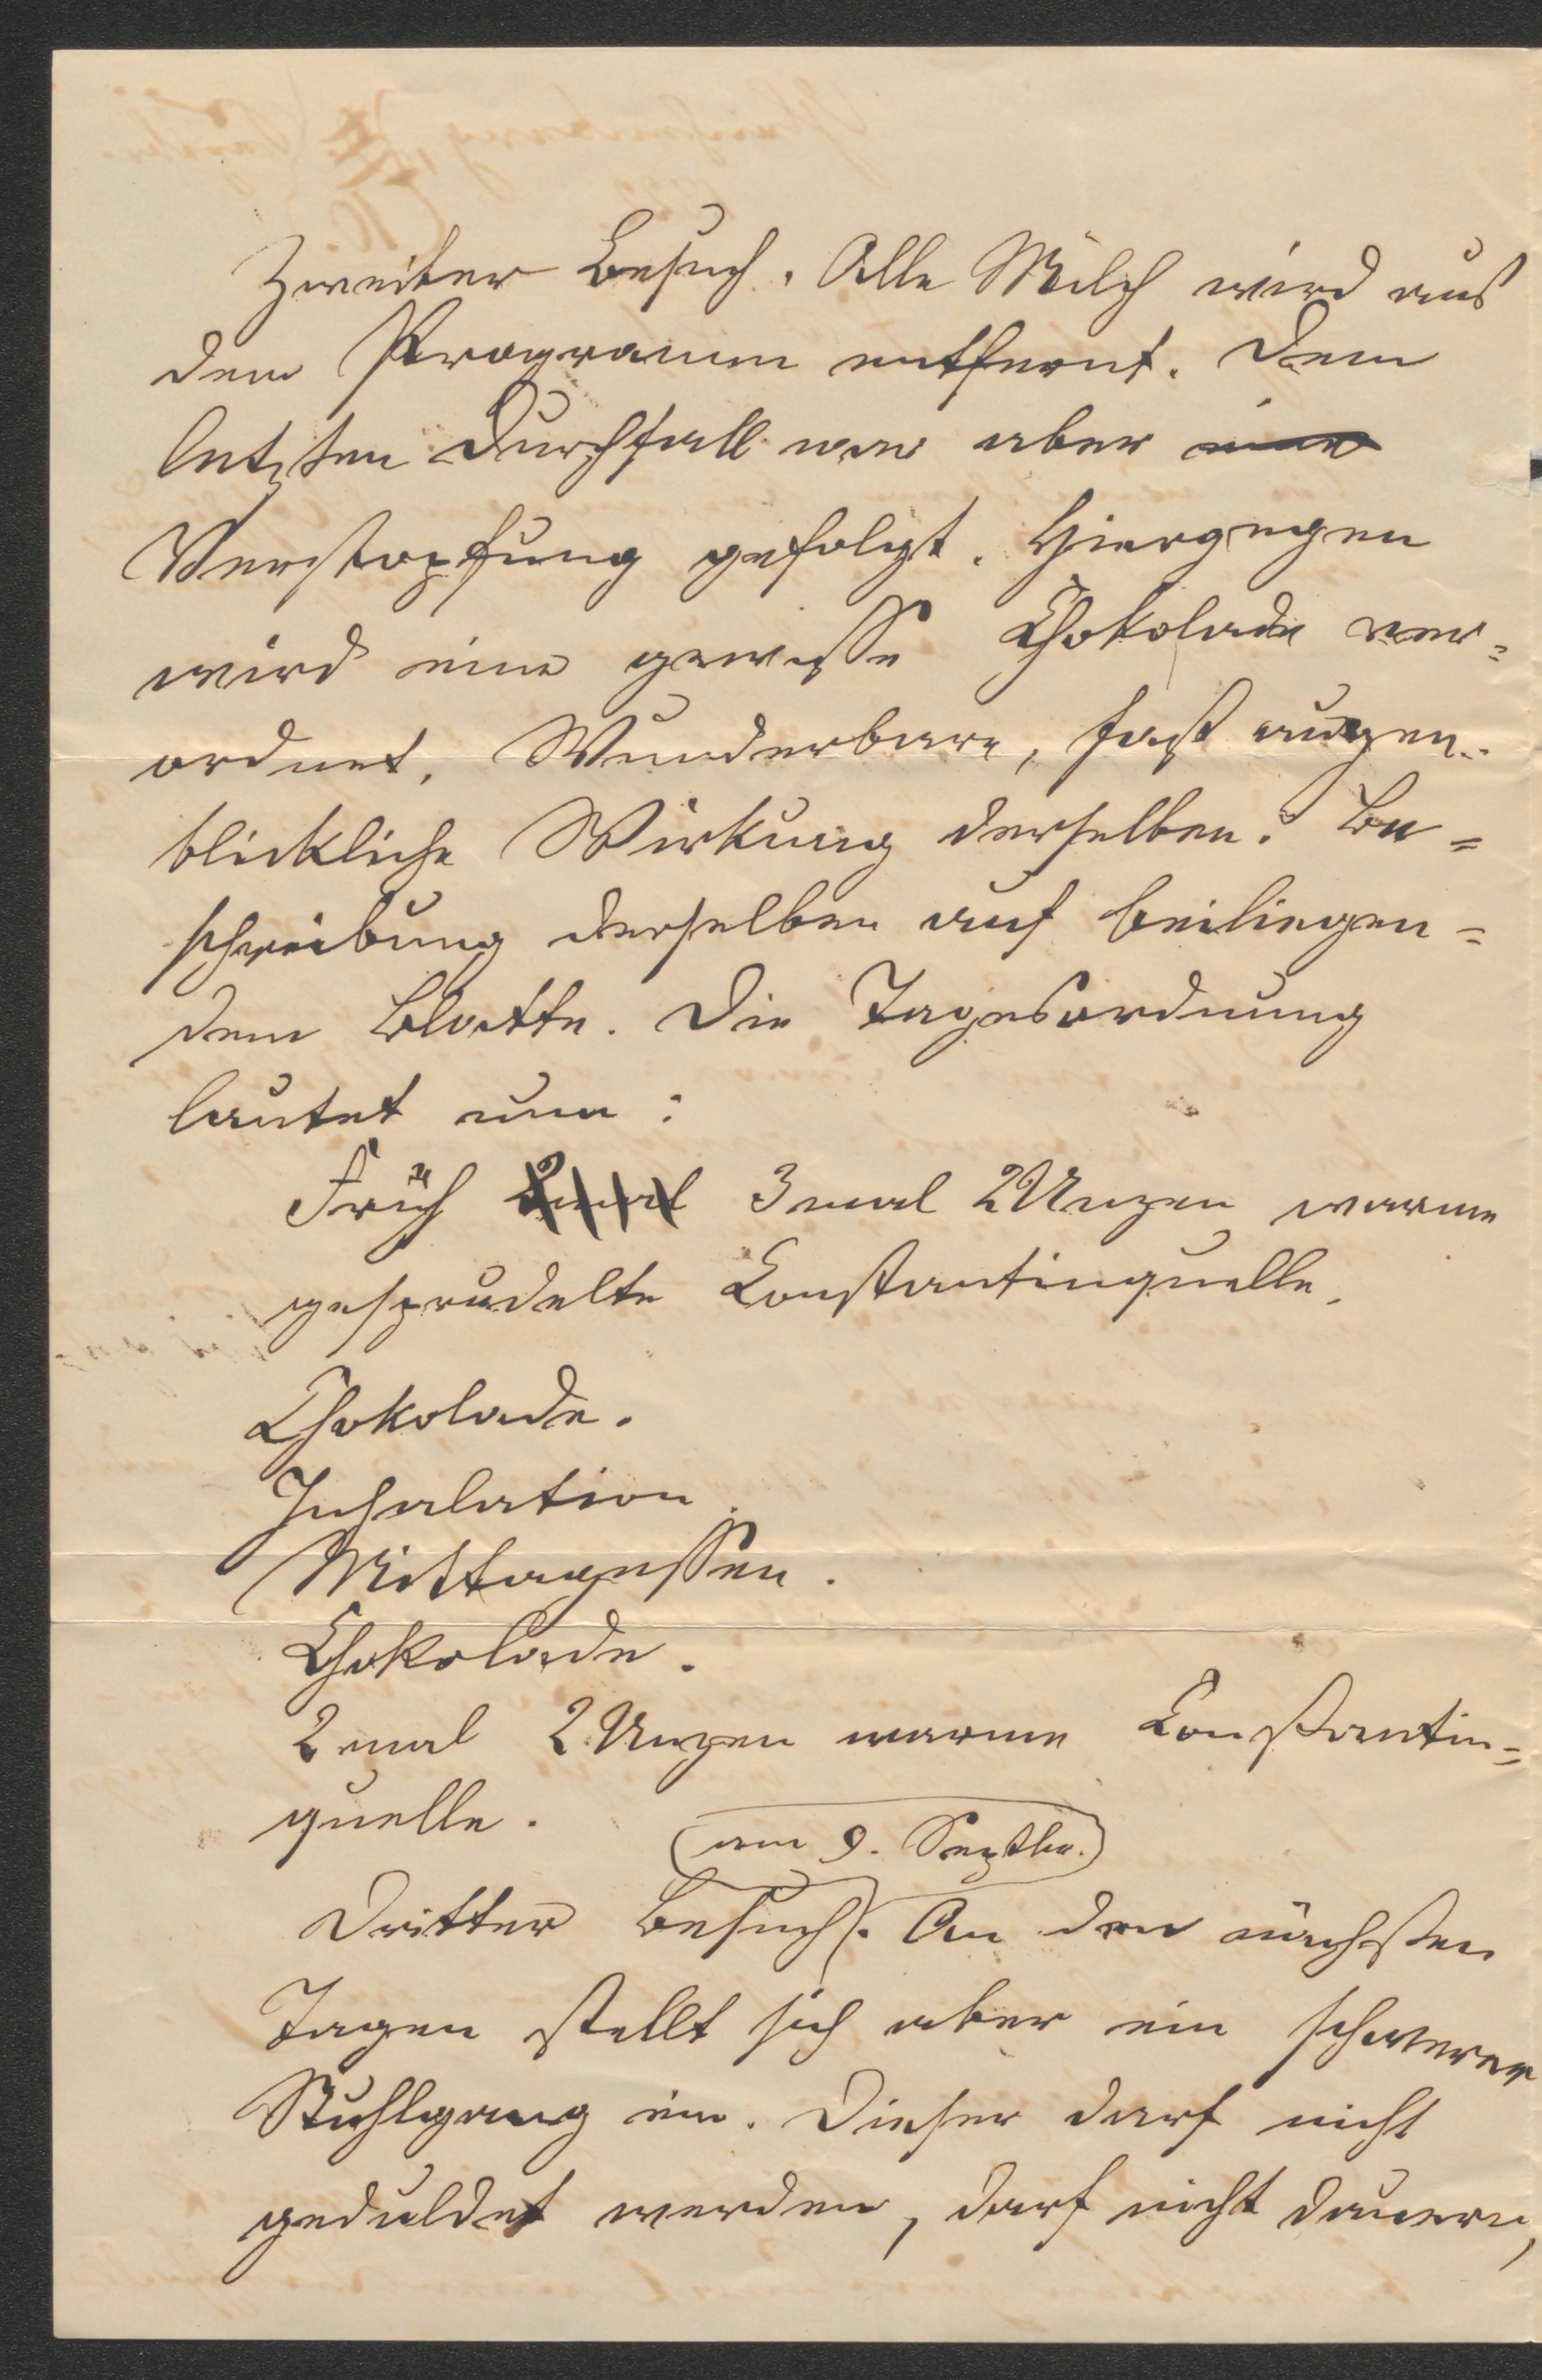 Zweiter Besuch. Alle Milch wird aus
dem Programm entfernt. Dem
letzten Durchfall war aber eine
Verstopfung gefolgt. Hiergegen
wird eine gewisse Chokolade ver=
ordnet. Wunderbare, fast augen=
blickliche Wirkung derselben. Be=
schreibung derselben auf beiliegen=
dem Blatte. Die Tagesordnung
lautet nun:
Früh 2mal 3mal 2 Unzen warme
gesprudelte Constantinquelle.
Chokolade.
Inhalation.
Mittagessen.
Chokolade.
2mal 2 Unzen warme Constantin=
quelle.
am 9. Septbr.
Dritter Besuch. An den nächsten
Tagen stellt sich aber ein schwerer
Stuhlgang ein. Dieser darf nicht
geduldet werden, darf nicht dauern,